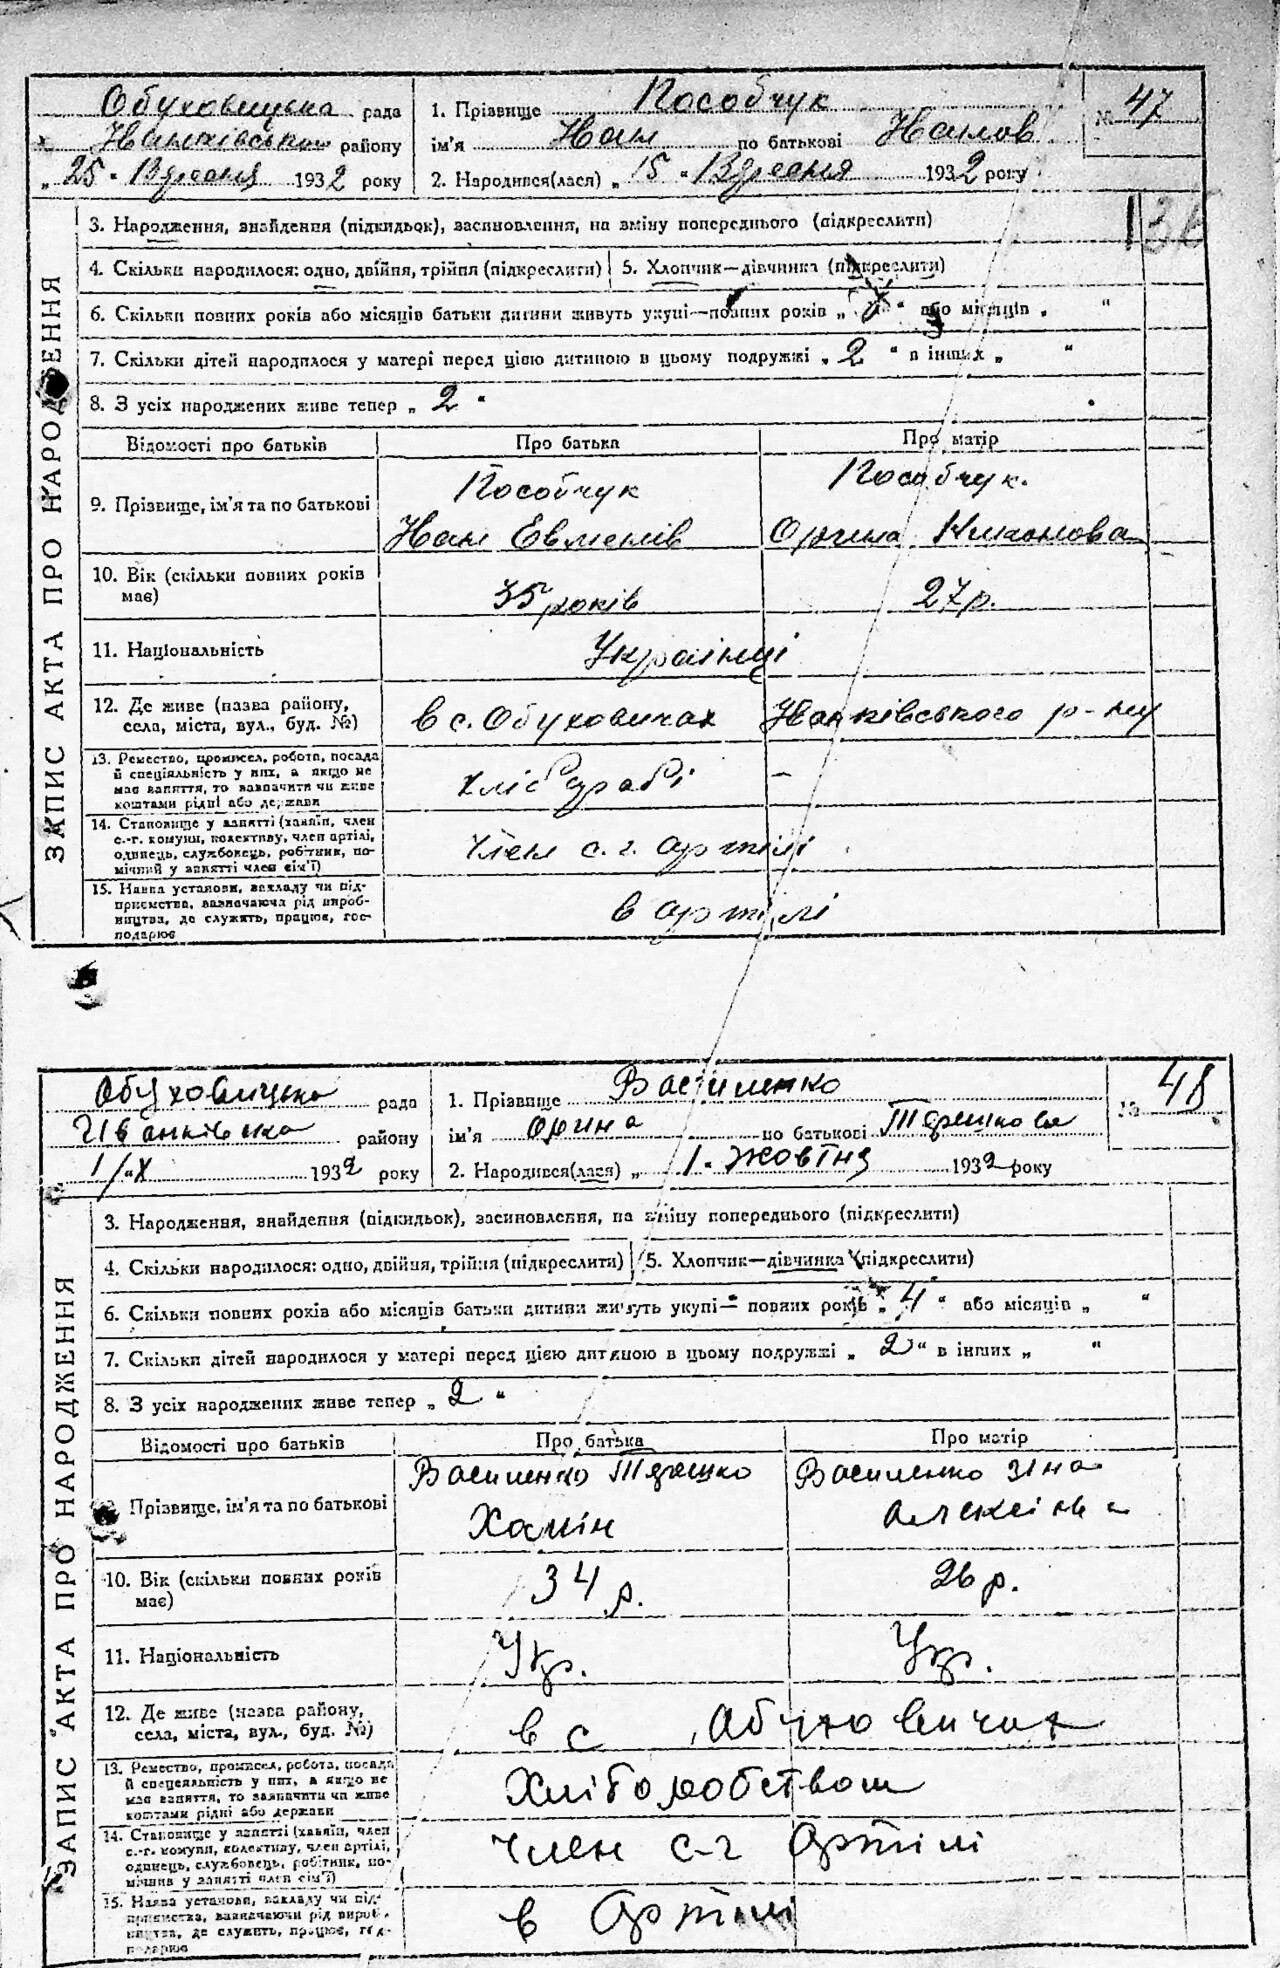 Обуховицька рада
Іванківського району
„ 25 " Вересня 1932 року
1. Прізвище Пособчук
ім'я Іван по батькові Іванов
2. Народився(лася) „ 15 " Вересня 1932 року
№ 47
ЗАПИС АКТА ПРО НАРОДЖЕННЯ
3. Народження, знайдення (підкидьок), засиновлення, на зміну попереднього (підкреслити)
4. Скільки народилося: одно, двійня, трійня (підкреслити)
5. Хлопчик—дівчинка (підкреслити)
6. Скільки повних років або місяців батьки дитини живуть укупі—повних років „ " або місяців „ "
7. Скільки дітей народилося у матері перед цією дитиною в цьому подружжі „ 2 " в інших „ "
8. З усіх народжених живе тепер „ 2 "
Відомості про батьків Про батька Про матір
9. Прізвище, ім'я та по батькові
Пособчук
Іван Евменів
Пособчук.
Орина Никонова
10. Вік (скільки повних років
має)
35 років 27 р.
11. Національність Українці
12. Де живе (назва району,
села, міста, вул., буд. №)
в с. Обуховичах Іванківського р-ну
13. Ремество, промисел, робота, посада
й спеціяльність у них, а якщо не
має заняття, то зазначити чи живе
коштами рідні або держави
хлібороби –
14. Становище у занятті (хазяїн, член
с.-г. комуни, колективу, член артілі,
одинець, службовець, робітник, по-
мічний у занятті член сім'ї)
член с. г. артілі
15. Назва установи, закладу чи під-
приємства, зазначаючи рід вироб-
ництва, де служить, працює, гос-
подарює
в артілі
Обуховицька рада
Іванківська району
1/X 1932 року
1. Прізвище Василенко
ім'я Орина по батькові Терешкова
2. Народився(лася) „ 1 " жовтня 1932 року
№ 48
ЗАПИС АКТА ПРО НАРОДЖЕННЯ
3. Народження, знайдення (підкидьок), засиновлення, на зміну попереднього (підкреслити)
4. Скільки народилося: одно, двійня, трійня (підкреслити)
5. Хлопчик—дівчинка (підкреслити)
6. Скільки повних років або місяців батьки дитини живуть укупі— повних років „ 4 " або місяців „ "
7. Скільки дітей народилося у матері перед цією дитиною в цьому подружжі „ 2 " в інших „ "
8. З усіх народжених живе тепер „ 2 "
Відомості про батьків Про батька Про матір
Прізвище, ім'я та по батькові
Василенко Терешко
Хамін
Василенко Зіна
10. Вік (скільки повних років
має)
34 р. 26 р.
11. Національність Укр. Укр.
12. Де живе (назва району,
села, міста, вул., буд. №)
в с. Обуховичах
13. Ремество, промисел, робота, посада
й спеціяльність у них, а якщо не
має заняття, то зазначити чи живе
коштами рідні або держави
Хліборобством
14. Становище у занятті (хазяїн, член
с.-г. комуни, колективу, член артілі,
одинець, службовець, робітник, по-
мічний у занятті член сім'ї)
член с-г артілі
15. Назва установи, закладу чи під-
приємства, зазначаючи рід вироб-
ництва, де служить, працює, гос-
подарює
в артілі